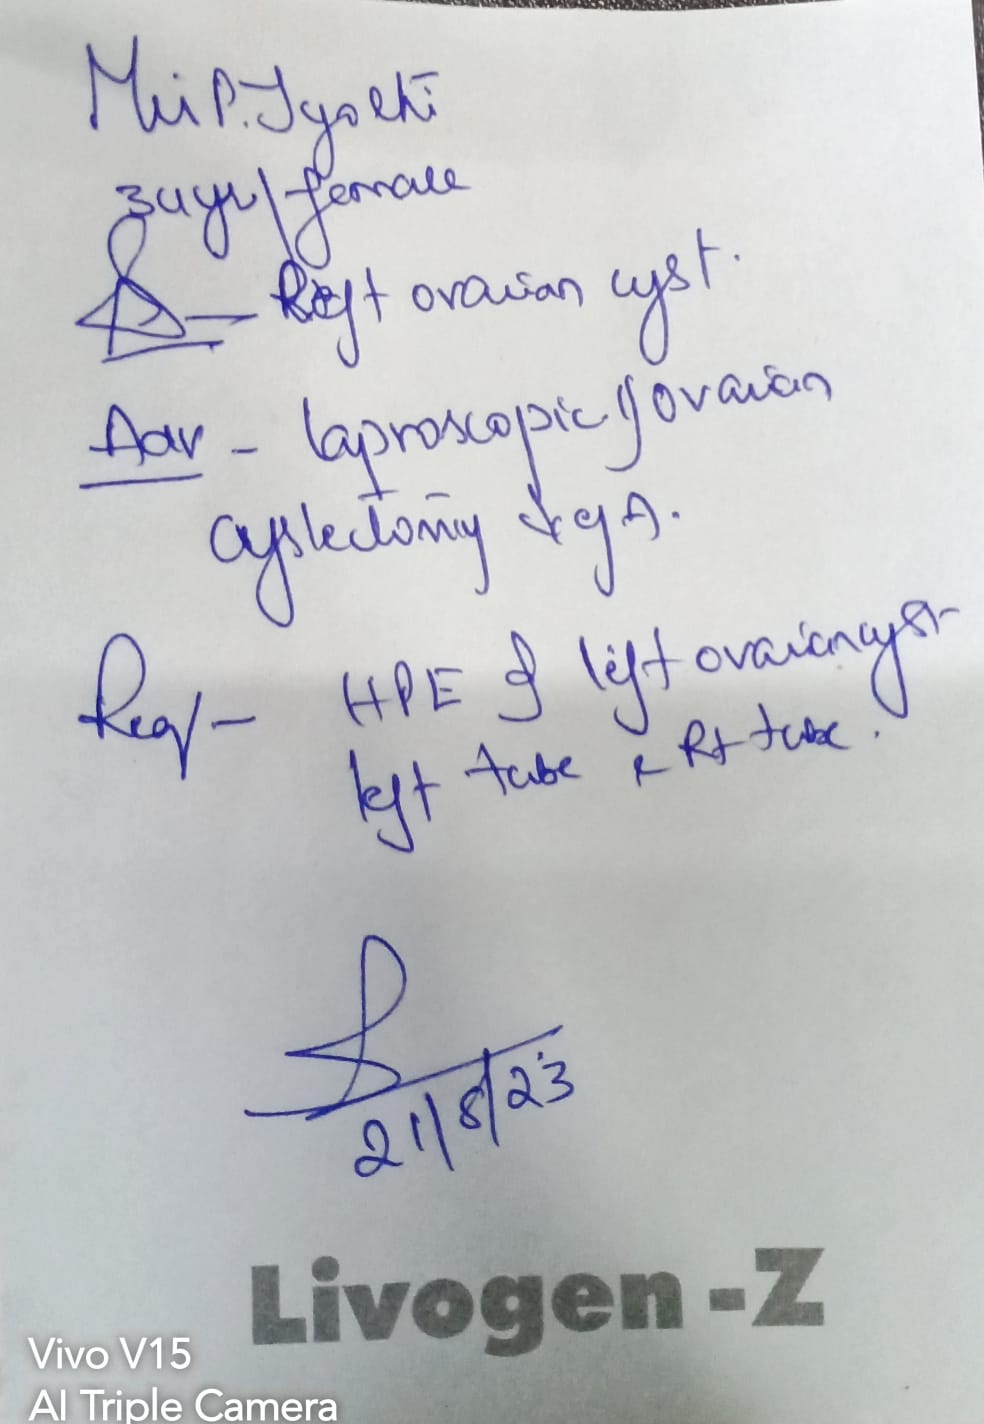 P. Jyothi
34yr/female
Δ - left ovarian cyst.
Adv - laproscopic ovarian
cystectomy
Req - HPE of left ovarian cyst
left tube & Rt tube.
21/8/23
Livogen-Z
Vivo V15
AI Triple Camera